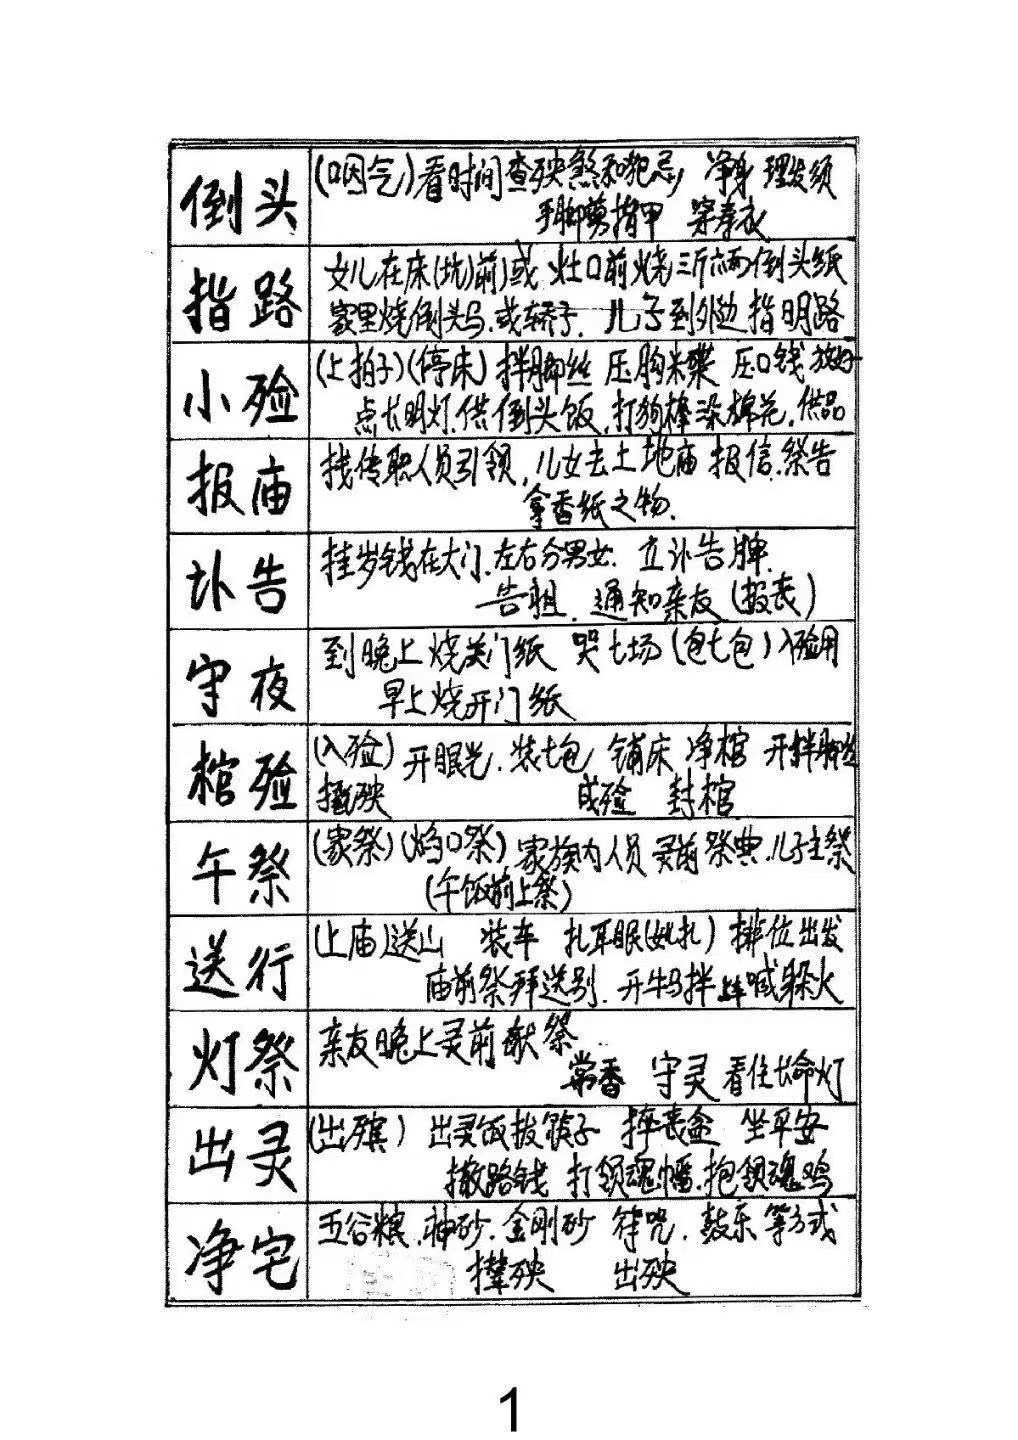 倒头
(咽气)看时间查殃煞和犯忌, 净身 理发须
手脚剪指甲 穿寿衣
指路
女儿在床(坑)前)或 灶口前烧三斤六两倒头纸
家里烧倒头马.或轿子. 儿子到外边指明路
小殓
(上拍子)(停床) 拌脚丝 压胸米碟 压口钱 放好
点长明灯.供倒头饭,打狗棒染棉花.供品
报庙
找传职人员引领,儿女去土地庙报信.祭告
拿香纸之物.
讣告
挂岁钱在大门.左右分男女. 立讣告牌.
告祖. 通知亲友(报丧)
守夜
到晚上烧关门纸 哭七场(包七包)入殓用
早上烧开门纸
棺殓
(入殓) 开眼光.装七包 铺床 净棺 开拌脚丝
撵殃 成殓 封棺
午祭
(家祭)(焰口祭)家族内人员 灵前祭典.儿子主祭
(午饭前上祭)
送行
(上庙)送山 装车 扎耳眼(女扎) 排位出发
庙前祭拜送别. 开牛马拌 喊躲火
灯祭
亲友晚上灵前献祭
常香 守灵 看住长命灯
出灵
(出殡) 出灵饭拔筷子 摔丧盆 坐平安
撒路钱 打领魂幡.抱领魂鸡
净宅
五谷粮.神砂.金刚砂 符咒.鼓乐等方式
撵殃 出殃
1